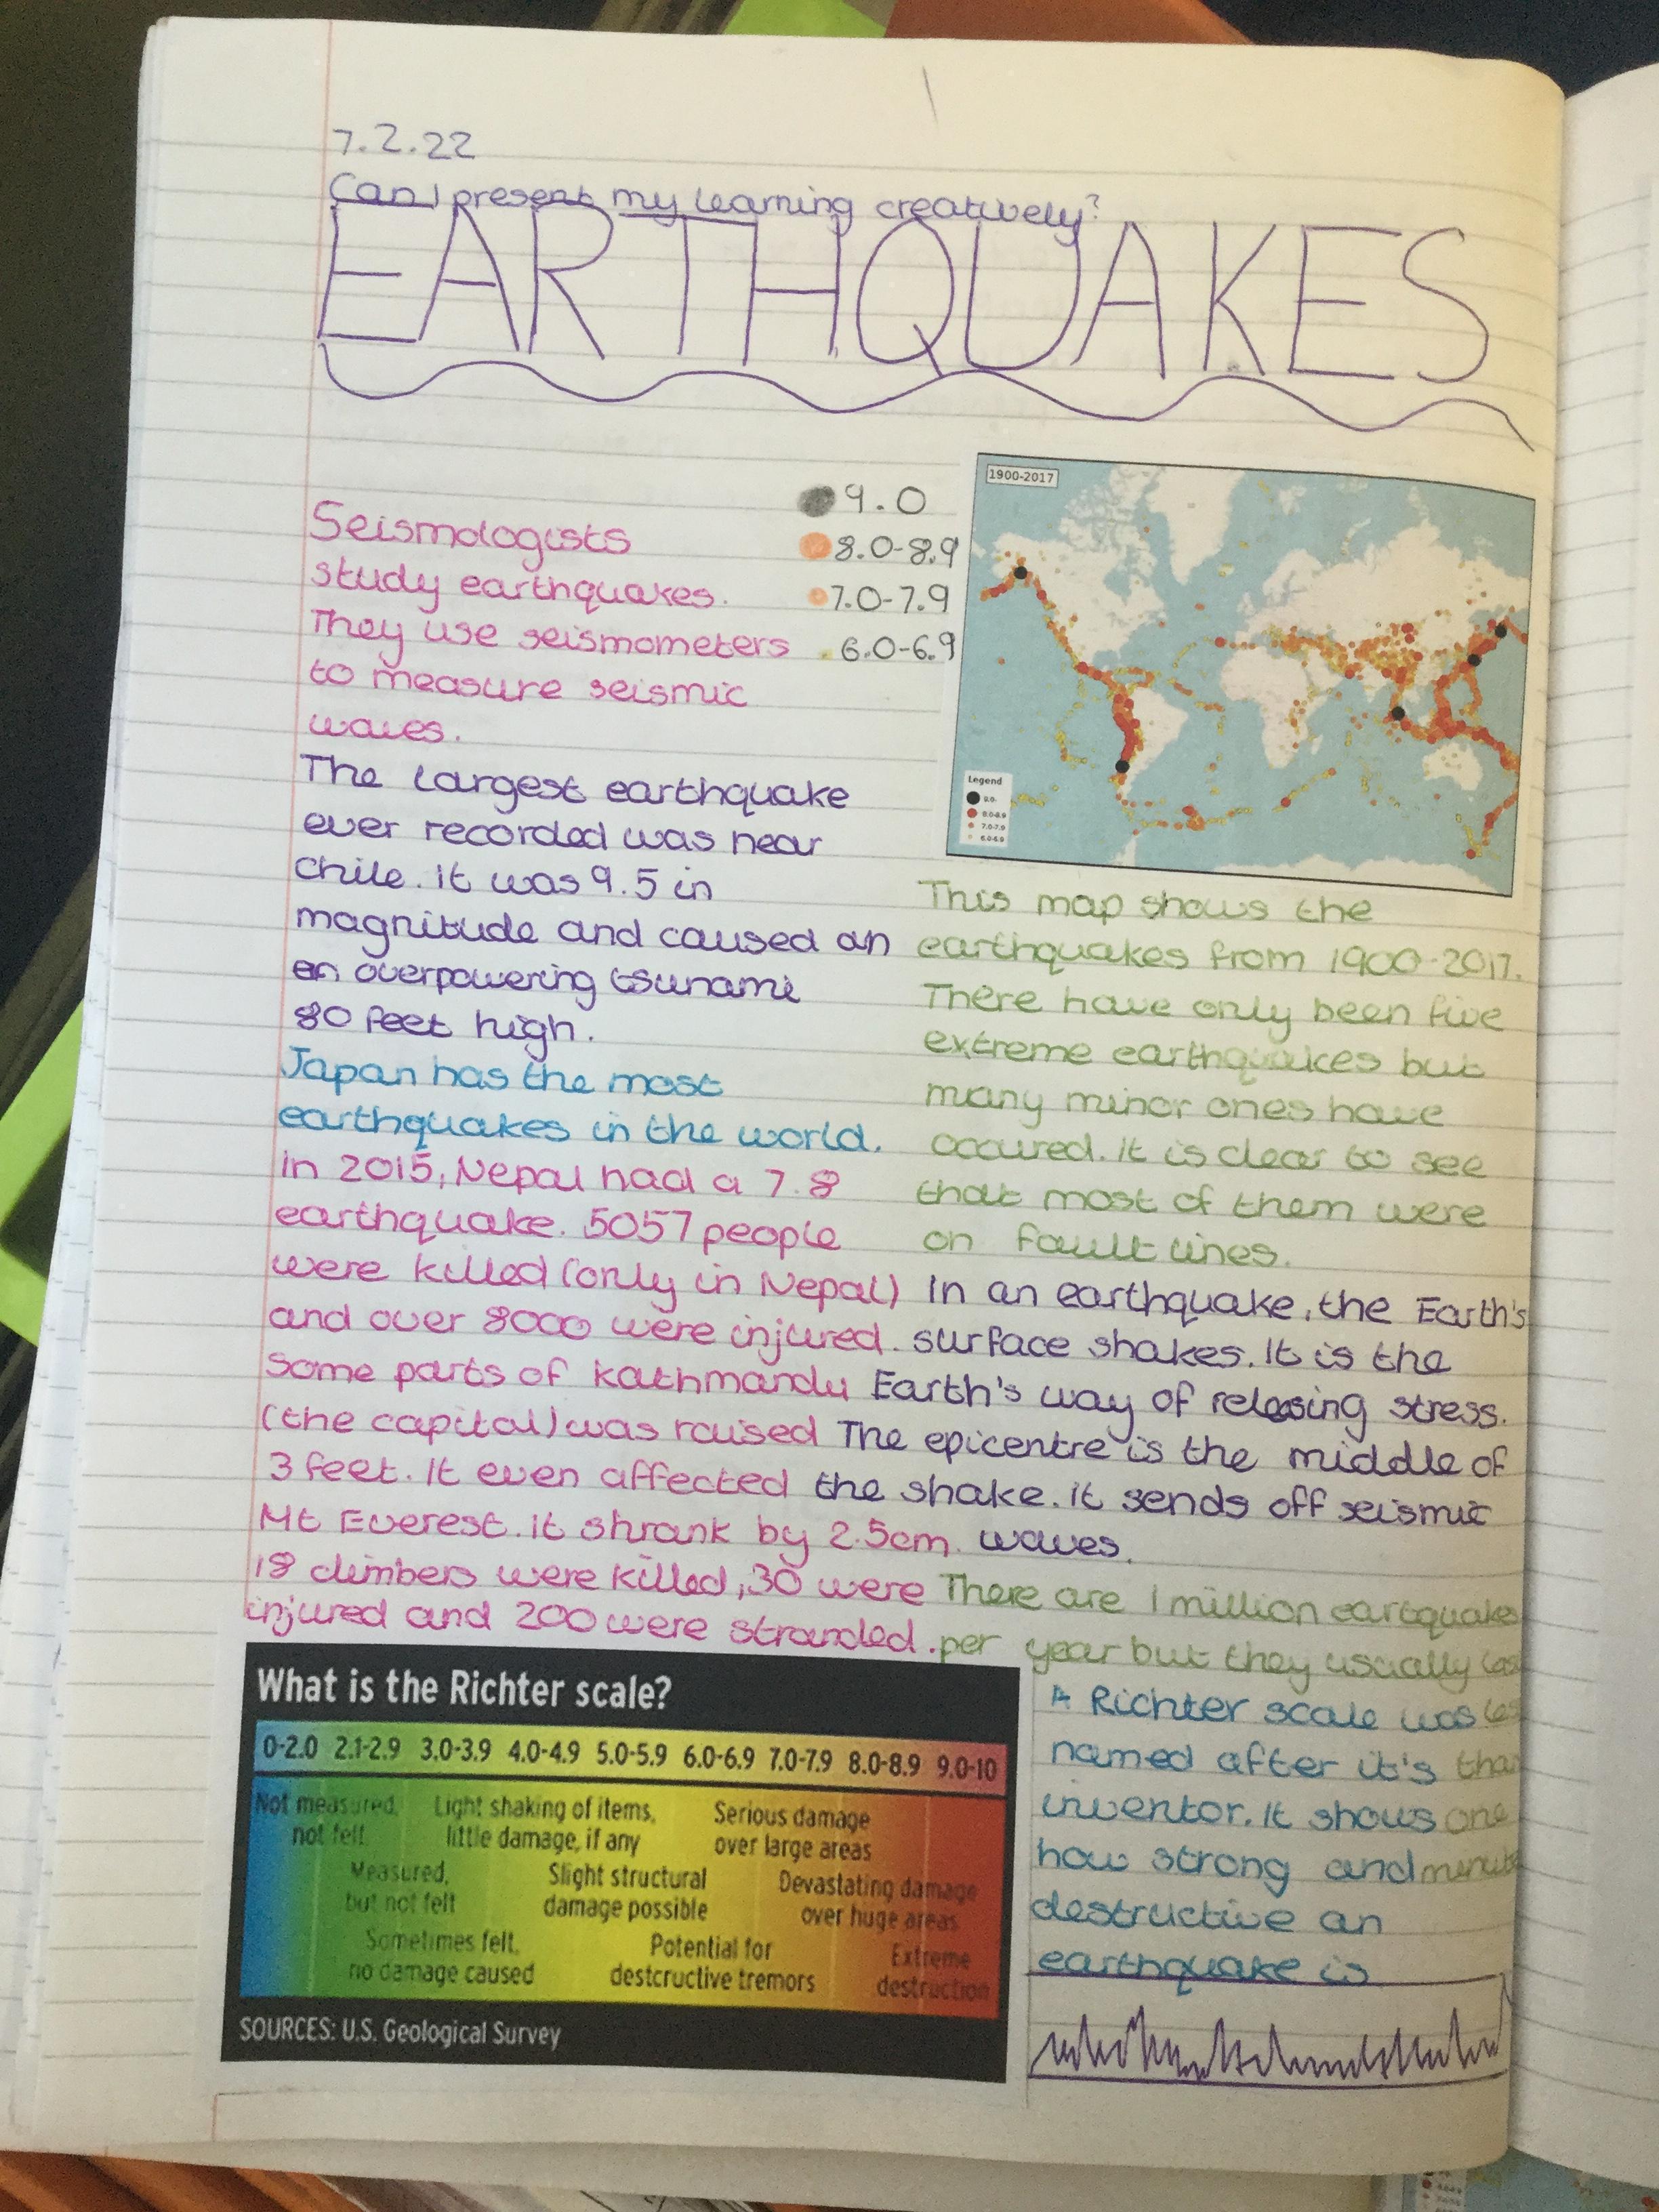 7.2.22
Can I present my learning creatively?
EARTHQUAKES
Seismologists
study earthquakes.
They use seismometers
to measure seismic
waves.
9.0
8.0-8.9
7.0-7.9
6.0-6.9
1900-2017
Legend
9.0-
8.0-8.9
7.0-7.9
6.0-6.9
The largest earthquake
ever recorded was near
Chile. It was 9.5 in
magnitude and caused an
an overpowering tsunami
80 feet high.
Japan has the most
earthquakes in the world.
In 2015, Nepal had a 7.8
earthquake. 5057 people
were killed (only in Nepal)
and over 8000 were injured.
Some parts of Kathmandu
(the capital) was raised
3 feet. It even affected
Mt Everest. It shrank by 2.5cm.
18 climbers were killed, 30 were
injured and 200 were stranded.
This map shows the
earthquakes from 1900-2017.
There have only been five
extreme earthquakes but
many minor ones have
occured. It is clear to see
that most of them were
on fault lines.
In an earthquake, the Earth's
surface shakes. It is the
Earth's way of releasing stress.
The epicentre is the middle of
the shake. it sends off seismic
waves.
There are 1 million eartquakes
per year but they usually
one
A Richter scale was
named after it's
inventor. It shows
how strong and
destructive an
earthquake is
What is the Richter scale?
0-2.0 2.1-2.9 3.0-3.9 4.0-4.9 5.0-5.9 6.0-6.9 7.0-7.9 8.0-8.9 9.0-10
Not measured,
not felt
Light shaking of items,
little damage, if any
Serious damage
over large areas
Measured,
but not felt
Slight structural
damage possible
Devastating damage
over huge areas
Sometimes felt,
no damage caused
Potential for
destcructive tremors
Extreme
destruction
SOURCES: U.S. Geological Survey